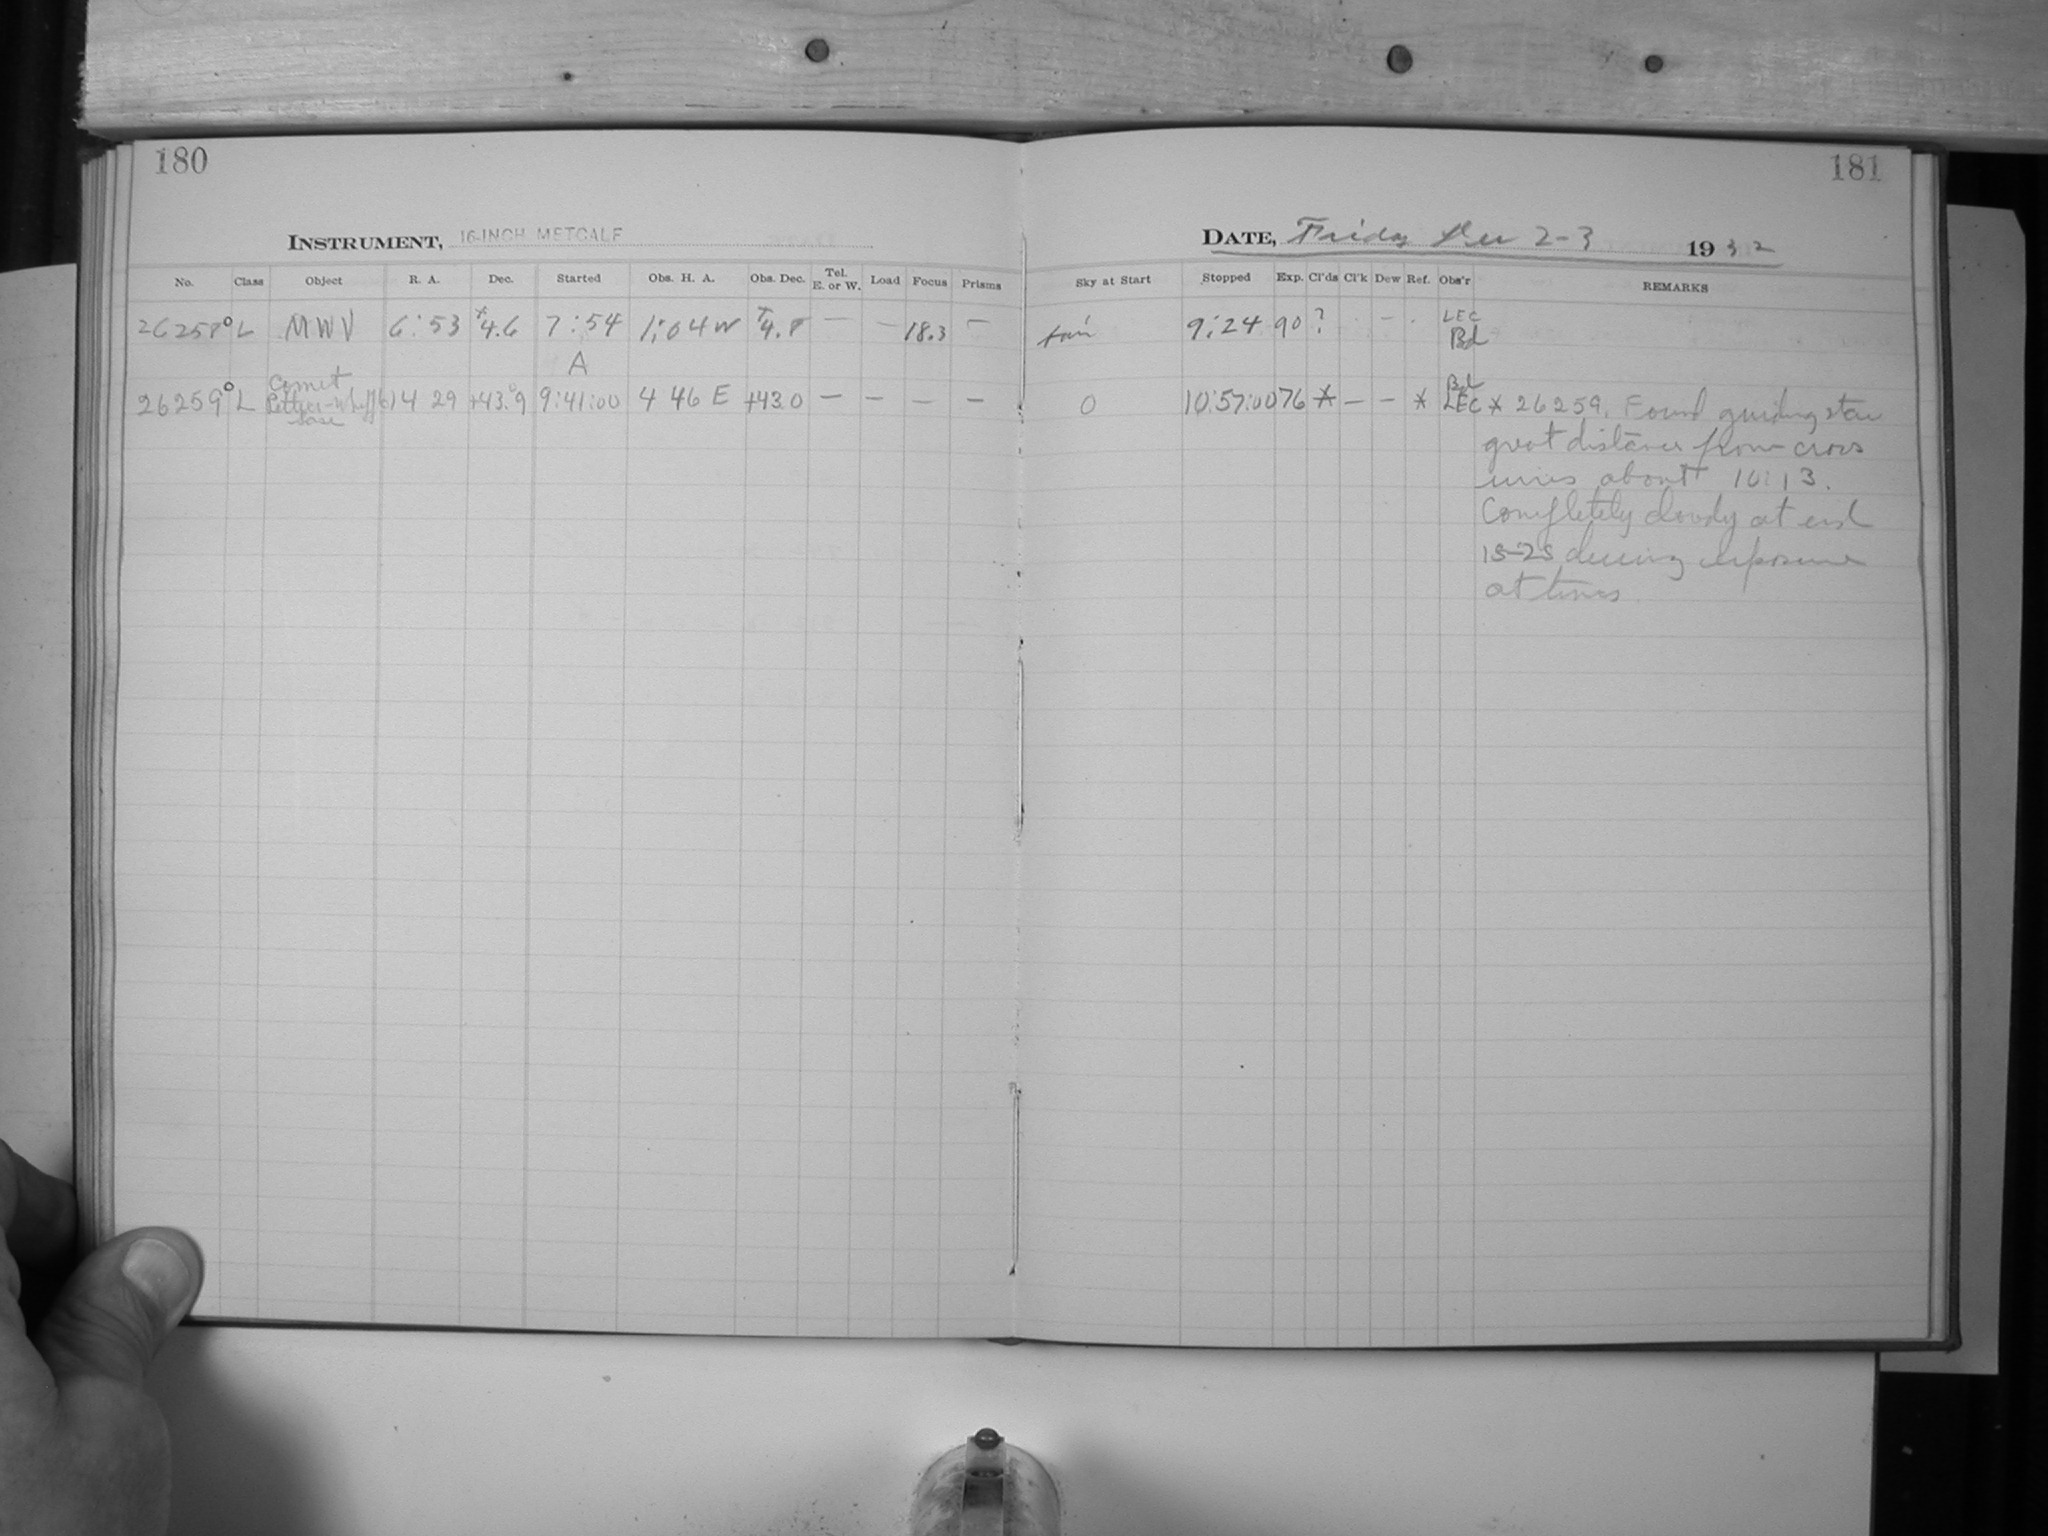 180
INSTRUMENT, 16-INCH METCALF
No. Class Object R. A. Dec. Started Obs. H. A. Obs. Dec. Tel. E. or W. Load Focus Prisms
26258° L MWV 6:53 +4.6 7:54 1:04 W +4.8 — — 18.3 —
A
26259° L Comet Peltier-Whipple 14 29 +43.°9 9:41:00 4 46 E +43.0 — — — —
181
DATE, Friday Dec 2-3 1932
Sky at Start Stopped Exp. Cl'ds Cl'k Dew Ref. Obs'r REMARKS
fair 9:24 90 ? - . LEC Bd
0 10:57:00 76 * — — * Bd LEC * 26259. Found guiding star
great distance from cross
wires about 10:13.
Completely cloudy at end
1S-2S during exposure
at times